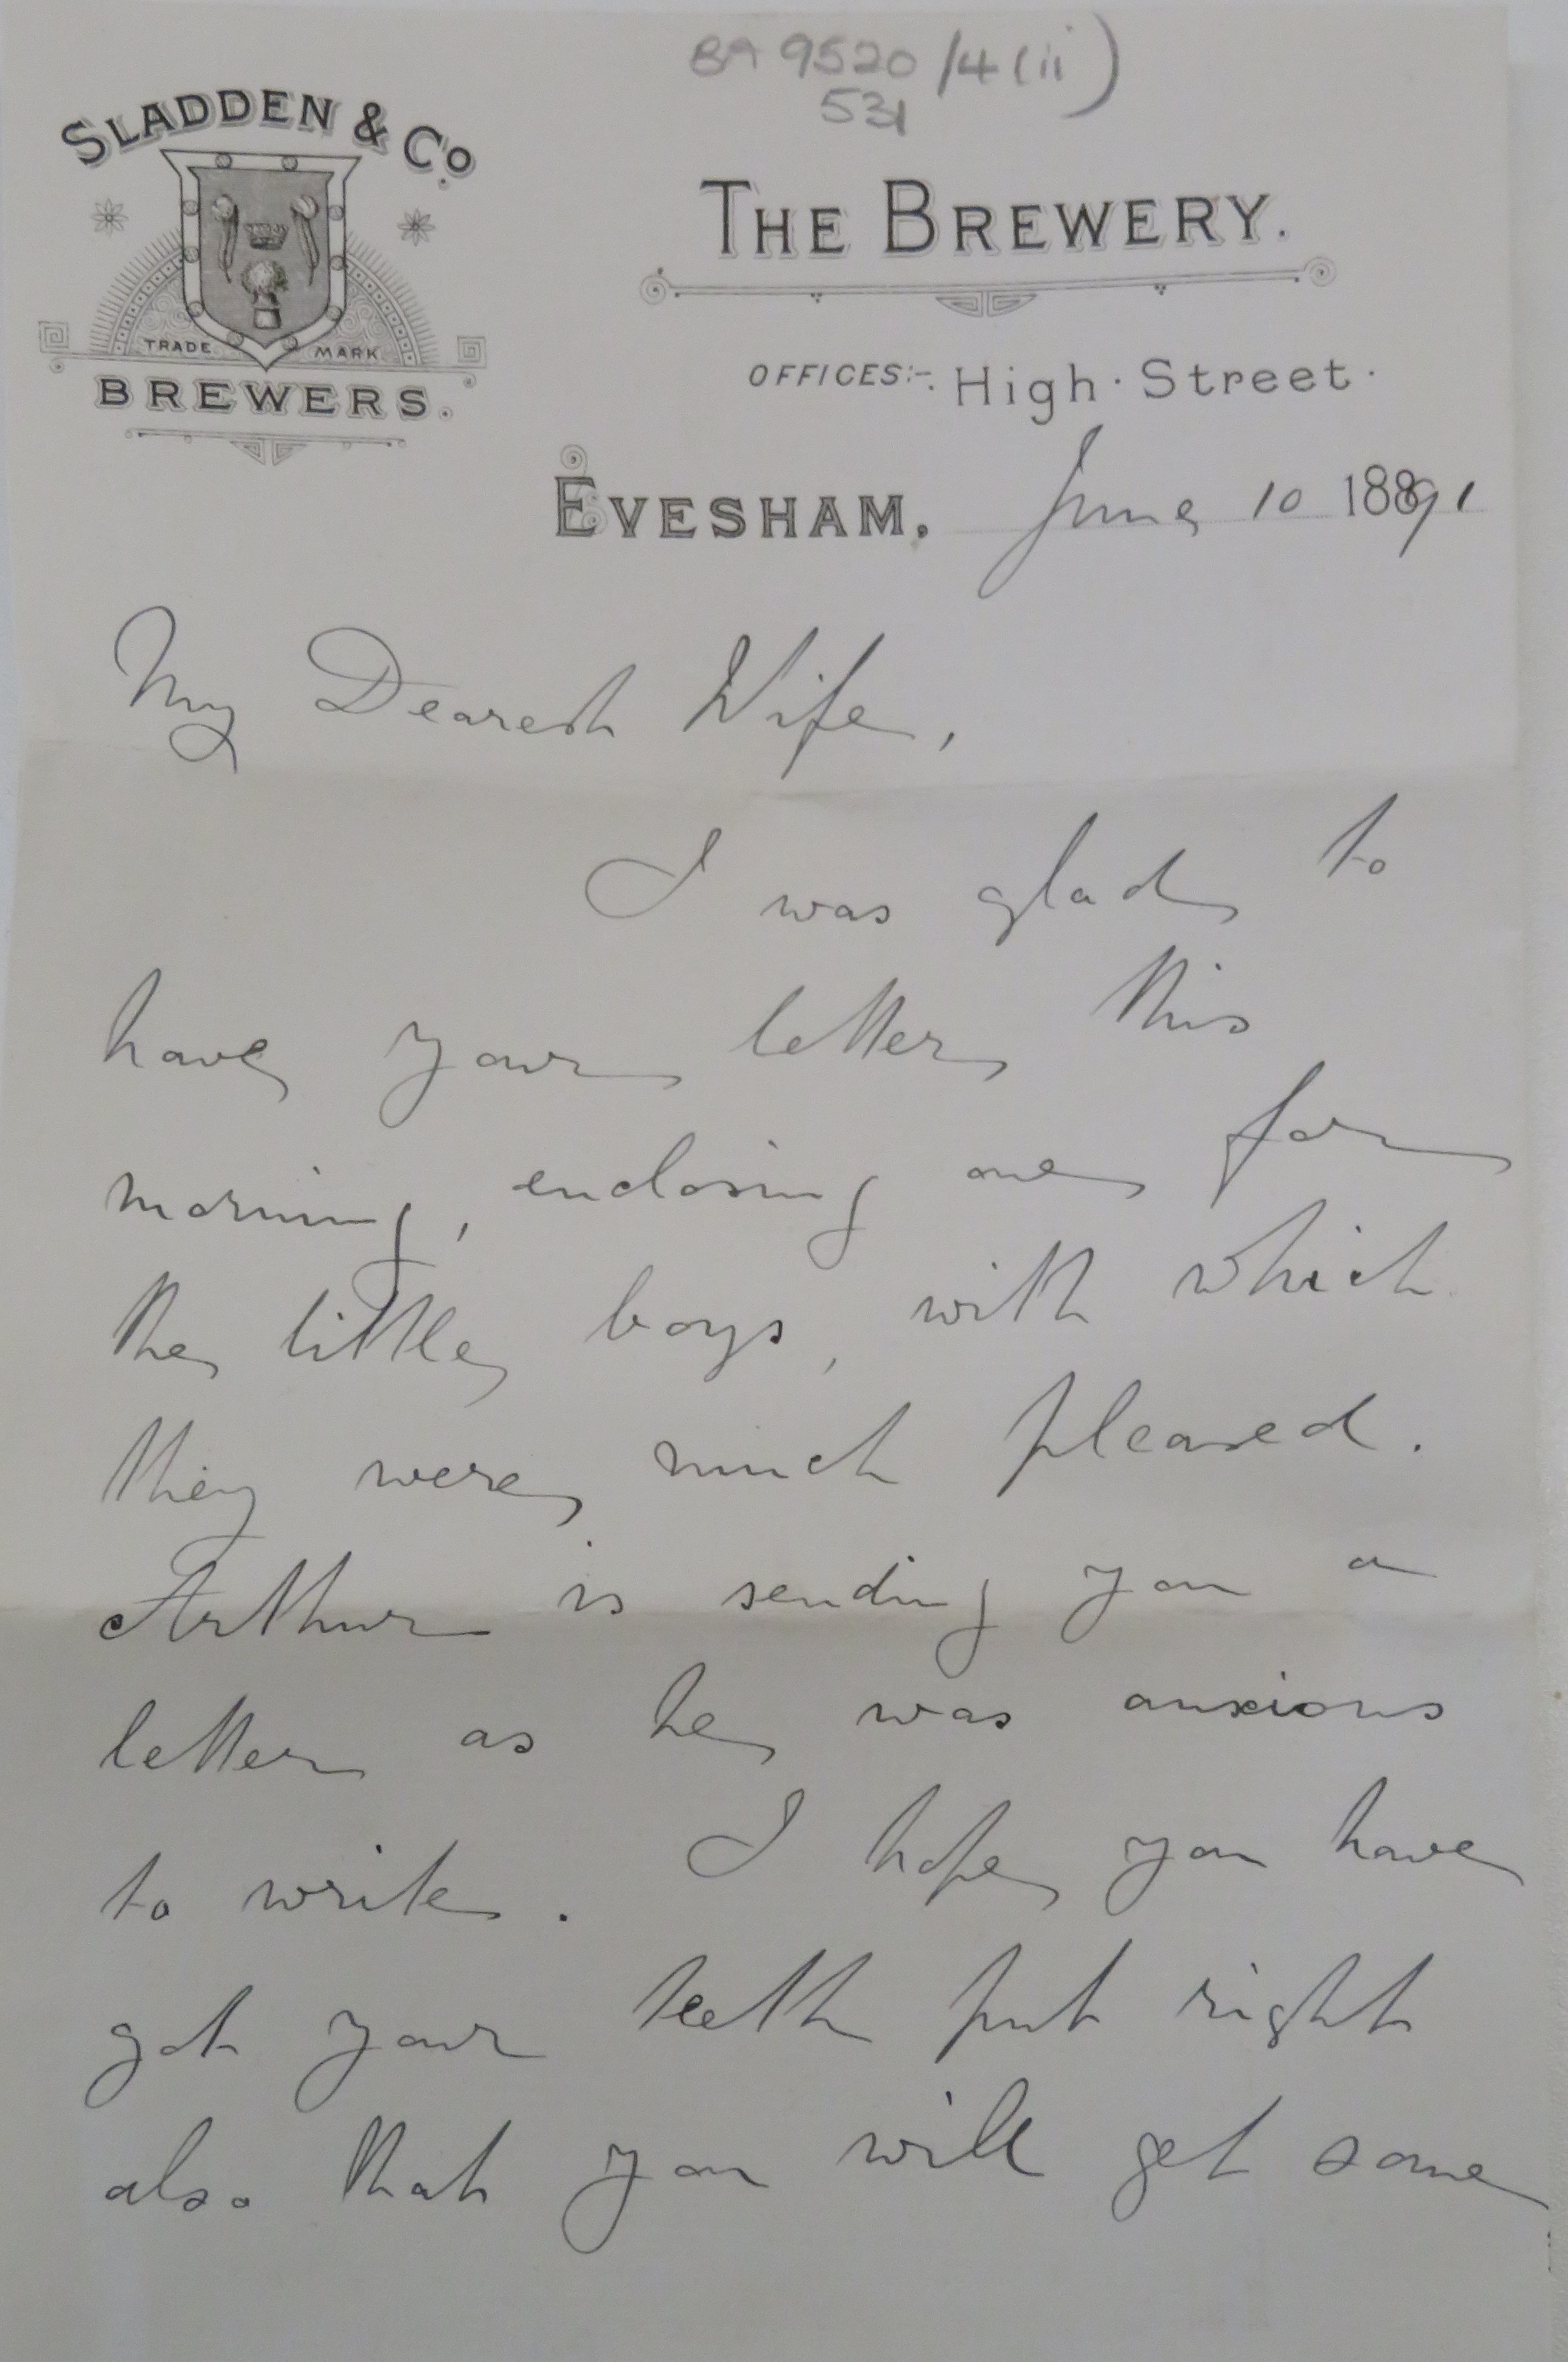 BA 9520/4(ii)
531
SLADDEN & Co.
TRADE MARK
BREWERS.
THE BREWERY.
OFFICES:- High Street.
EVESHAM. June 10 1891
My Dearest Wife,
I was glad to
have your letter this
morning, enclosing one for
the little boys, with which
they were much pleased.
Arthur is sending you a
letter as he was anxious
to write. I hope you have
got your teeth put right
also that you will get some